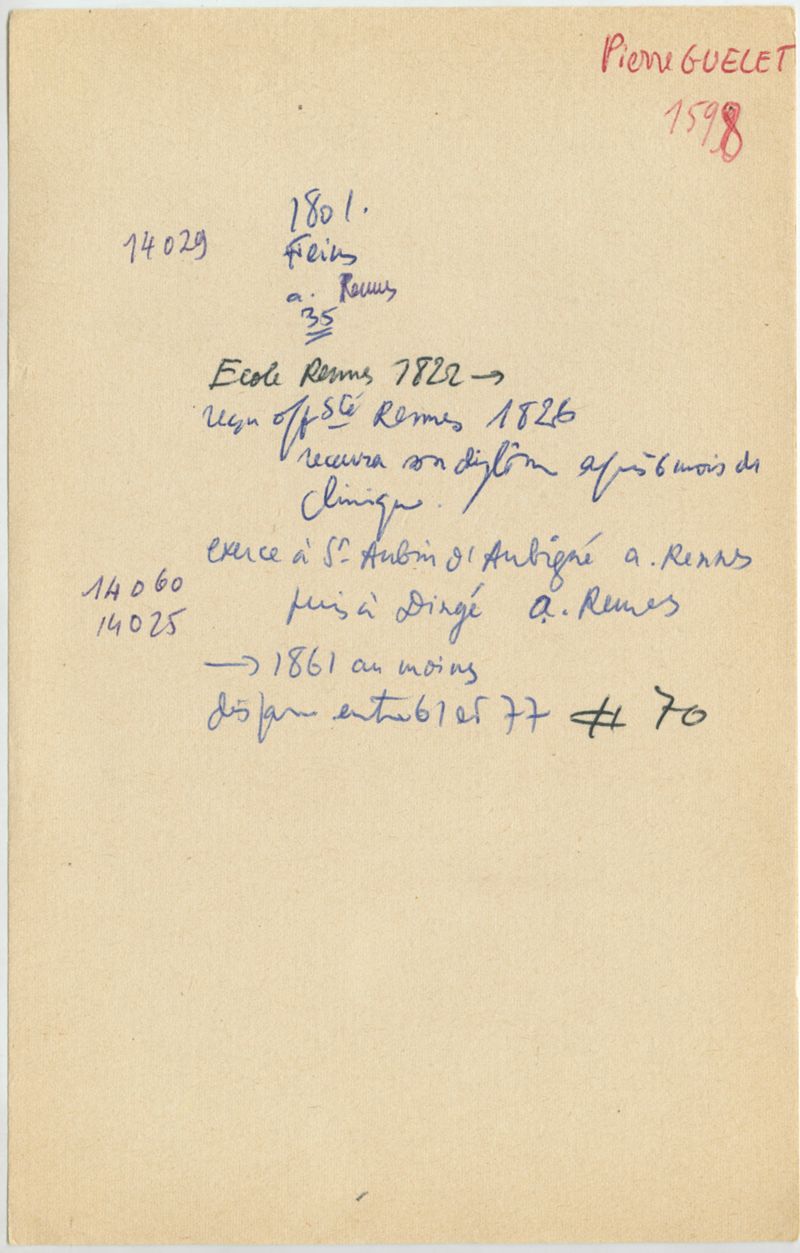 Pierre GUELET
1598
1801.
14029 Feins
a. Rennes
35
Ecole Rennes 1822 →
reçu off Sté Rennes 1826
recevra son diplôme après 6 mois de
clinique.
exerce à St Aubin d'Aubigné a. Rennes
14060
14025 puis à Dingé a. Rennes
→ 1861 au moins
disparu entre 61 et 77 # 70